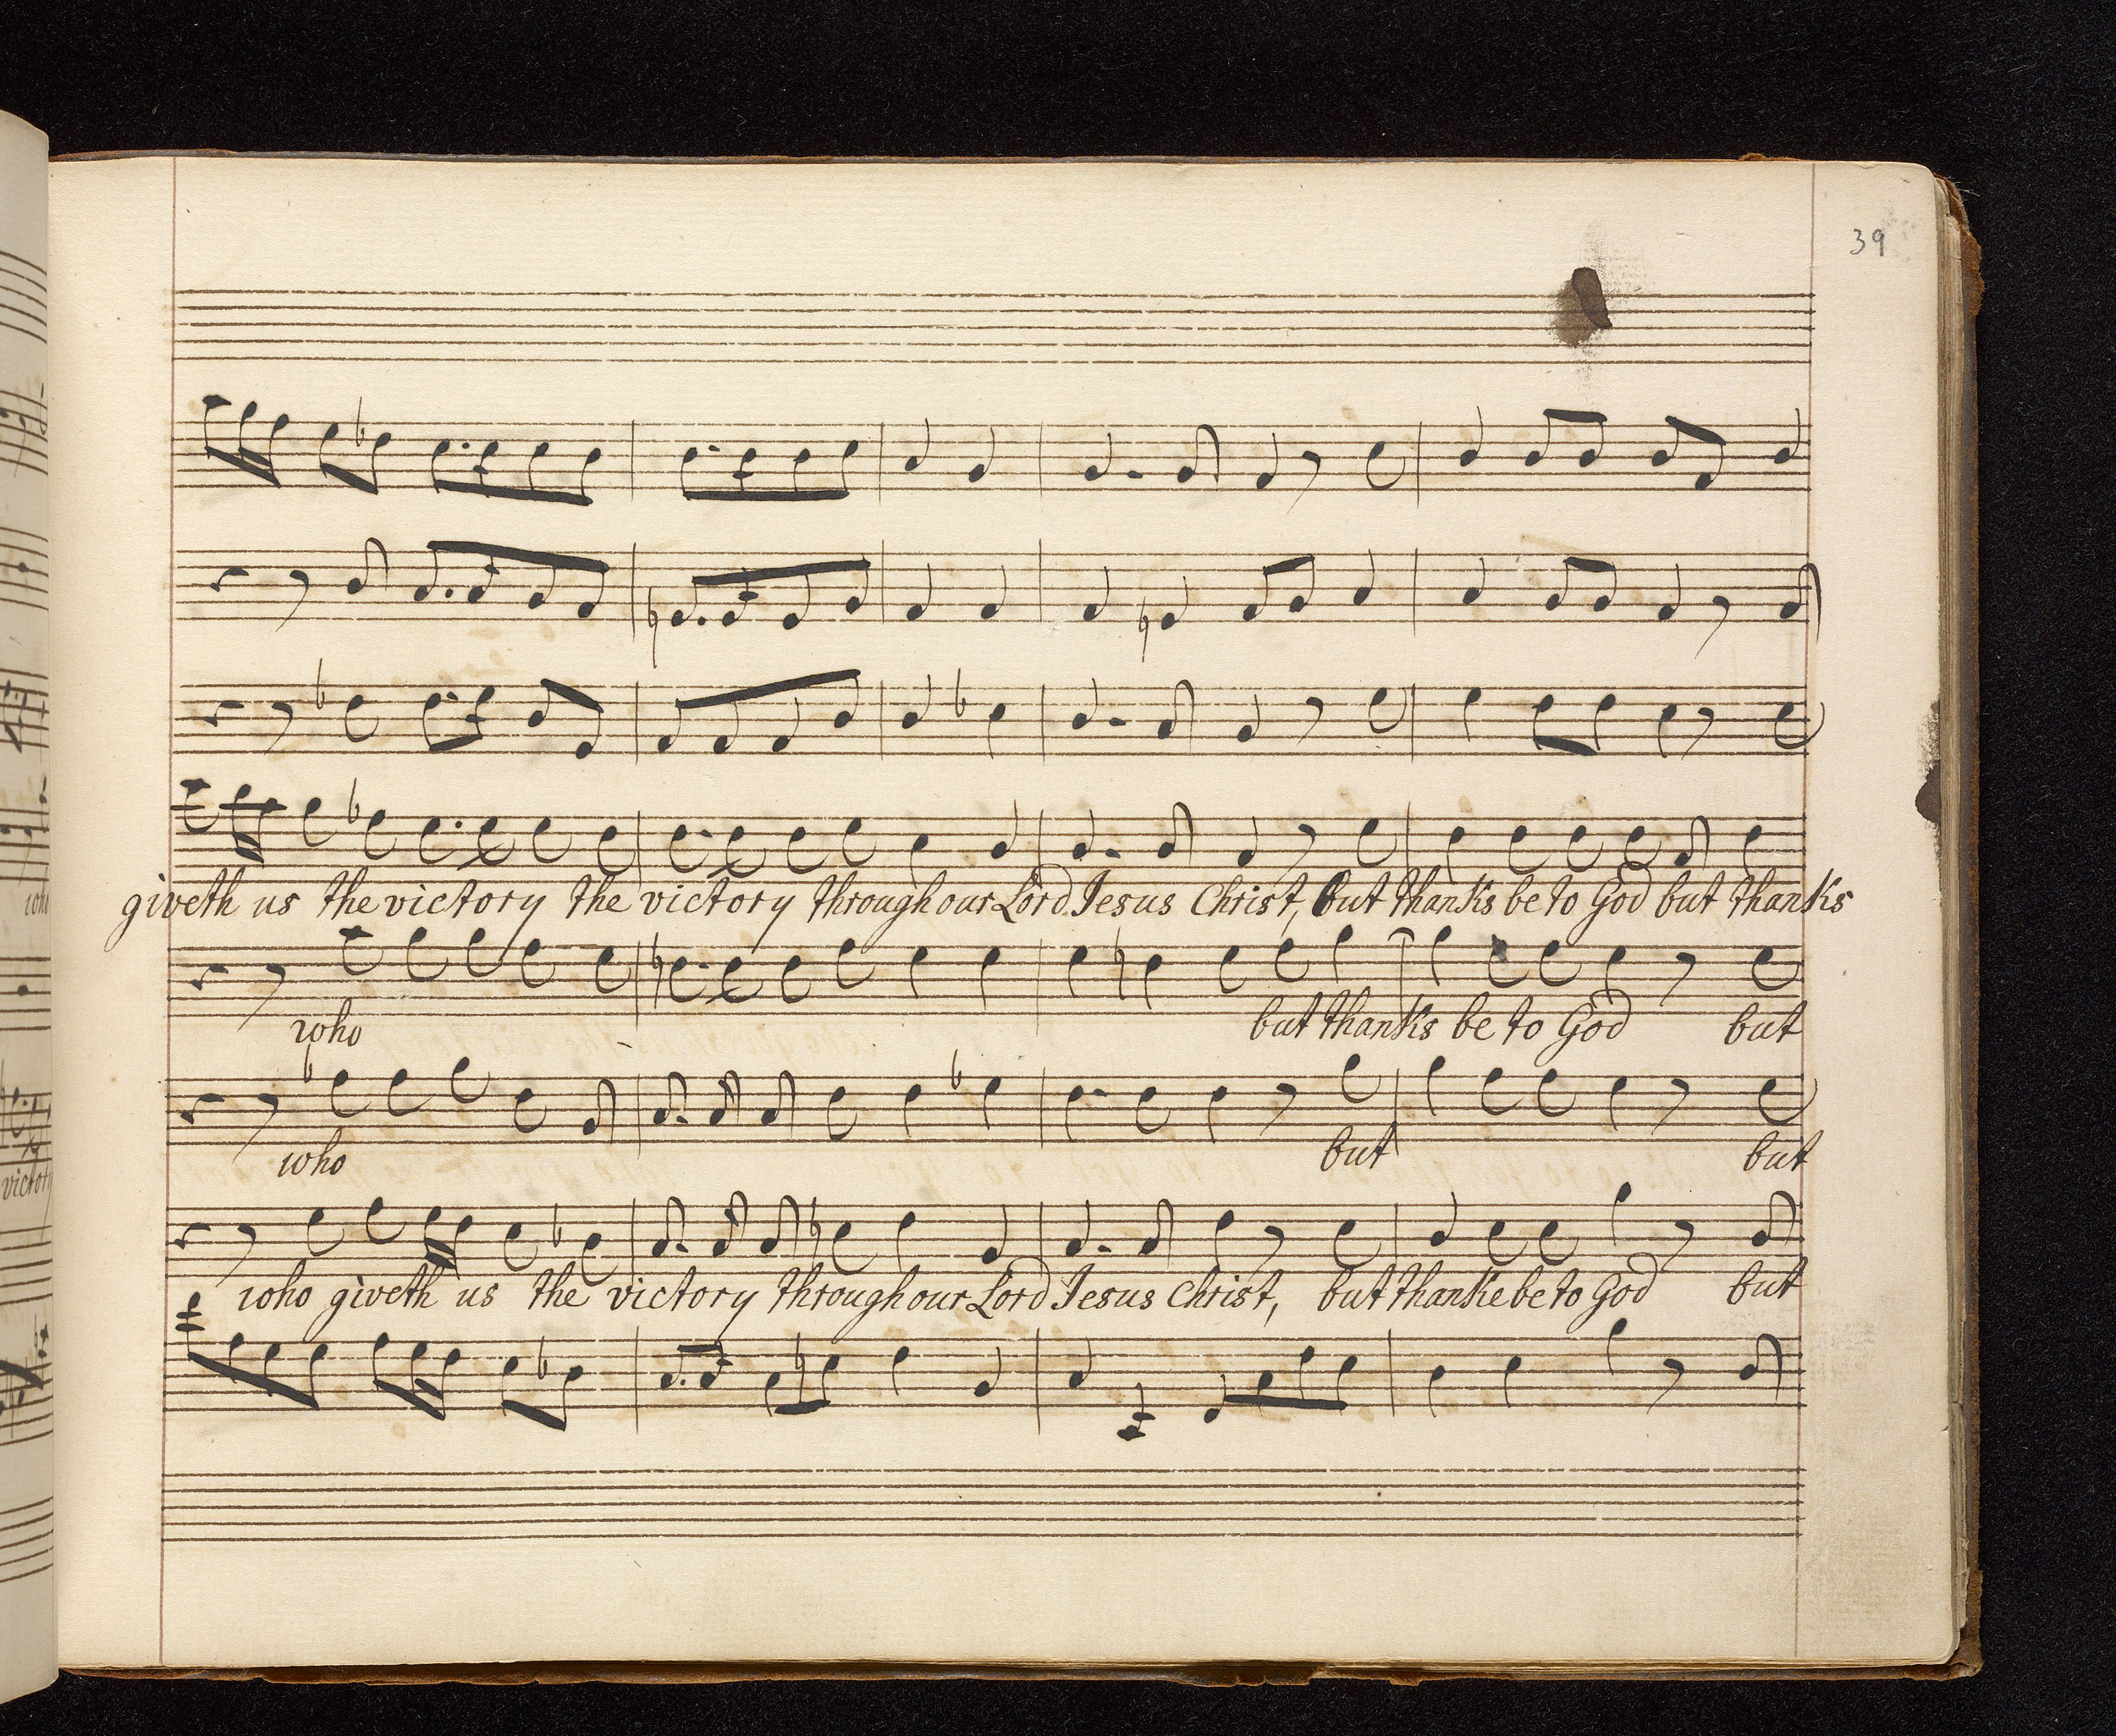 39
giveth us the victory the victory through our Lord Jesus Christ, but thanks be to God but thanks
who but thanks be to God but
who but but
who giveth us the victory through our Lord Jesus Christ, but thanke be to God but
who
victory